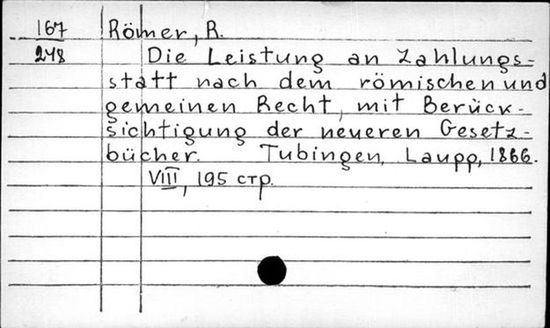 167 Römer, R.
248 Die Leistung an Zahlungs-
statt nach dem römischen und
gemeinen Recht, mit Berück-
sichtigung der neueren Gesetz-
bücher. Tubingen, Laupp, 1866.
VIII, 195 стр.